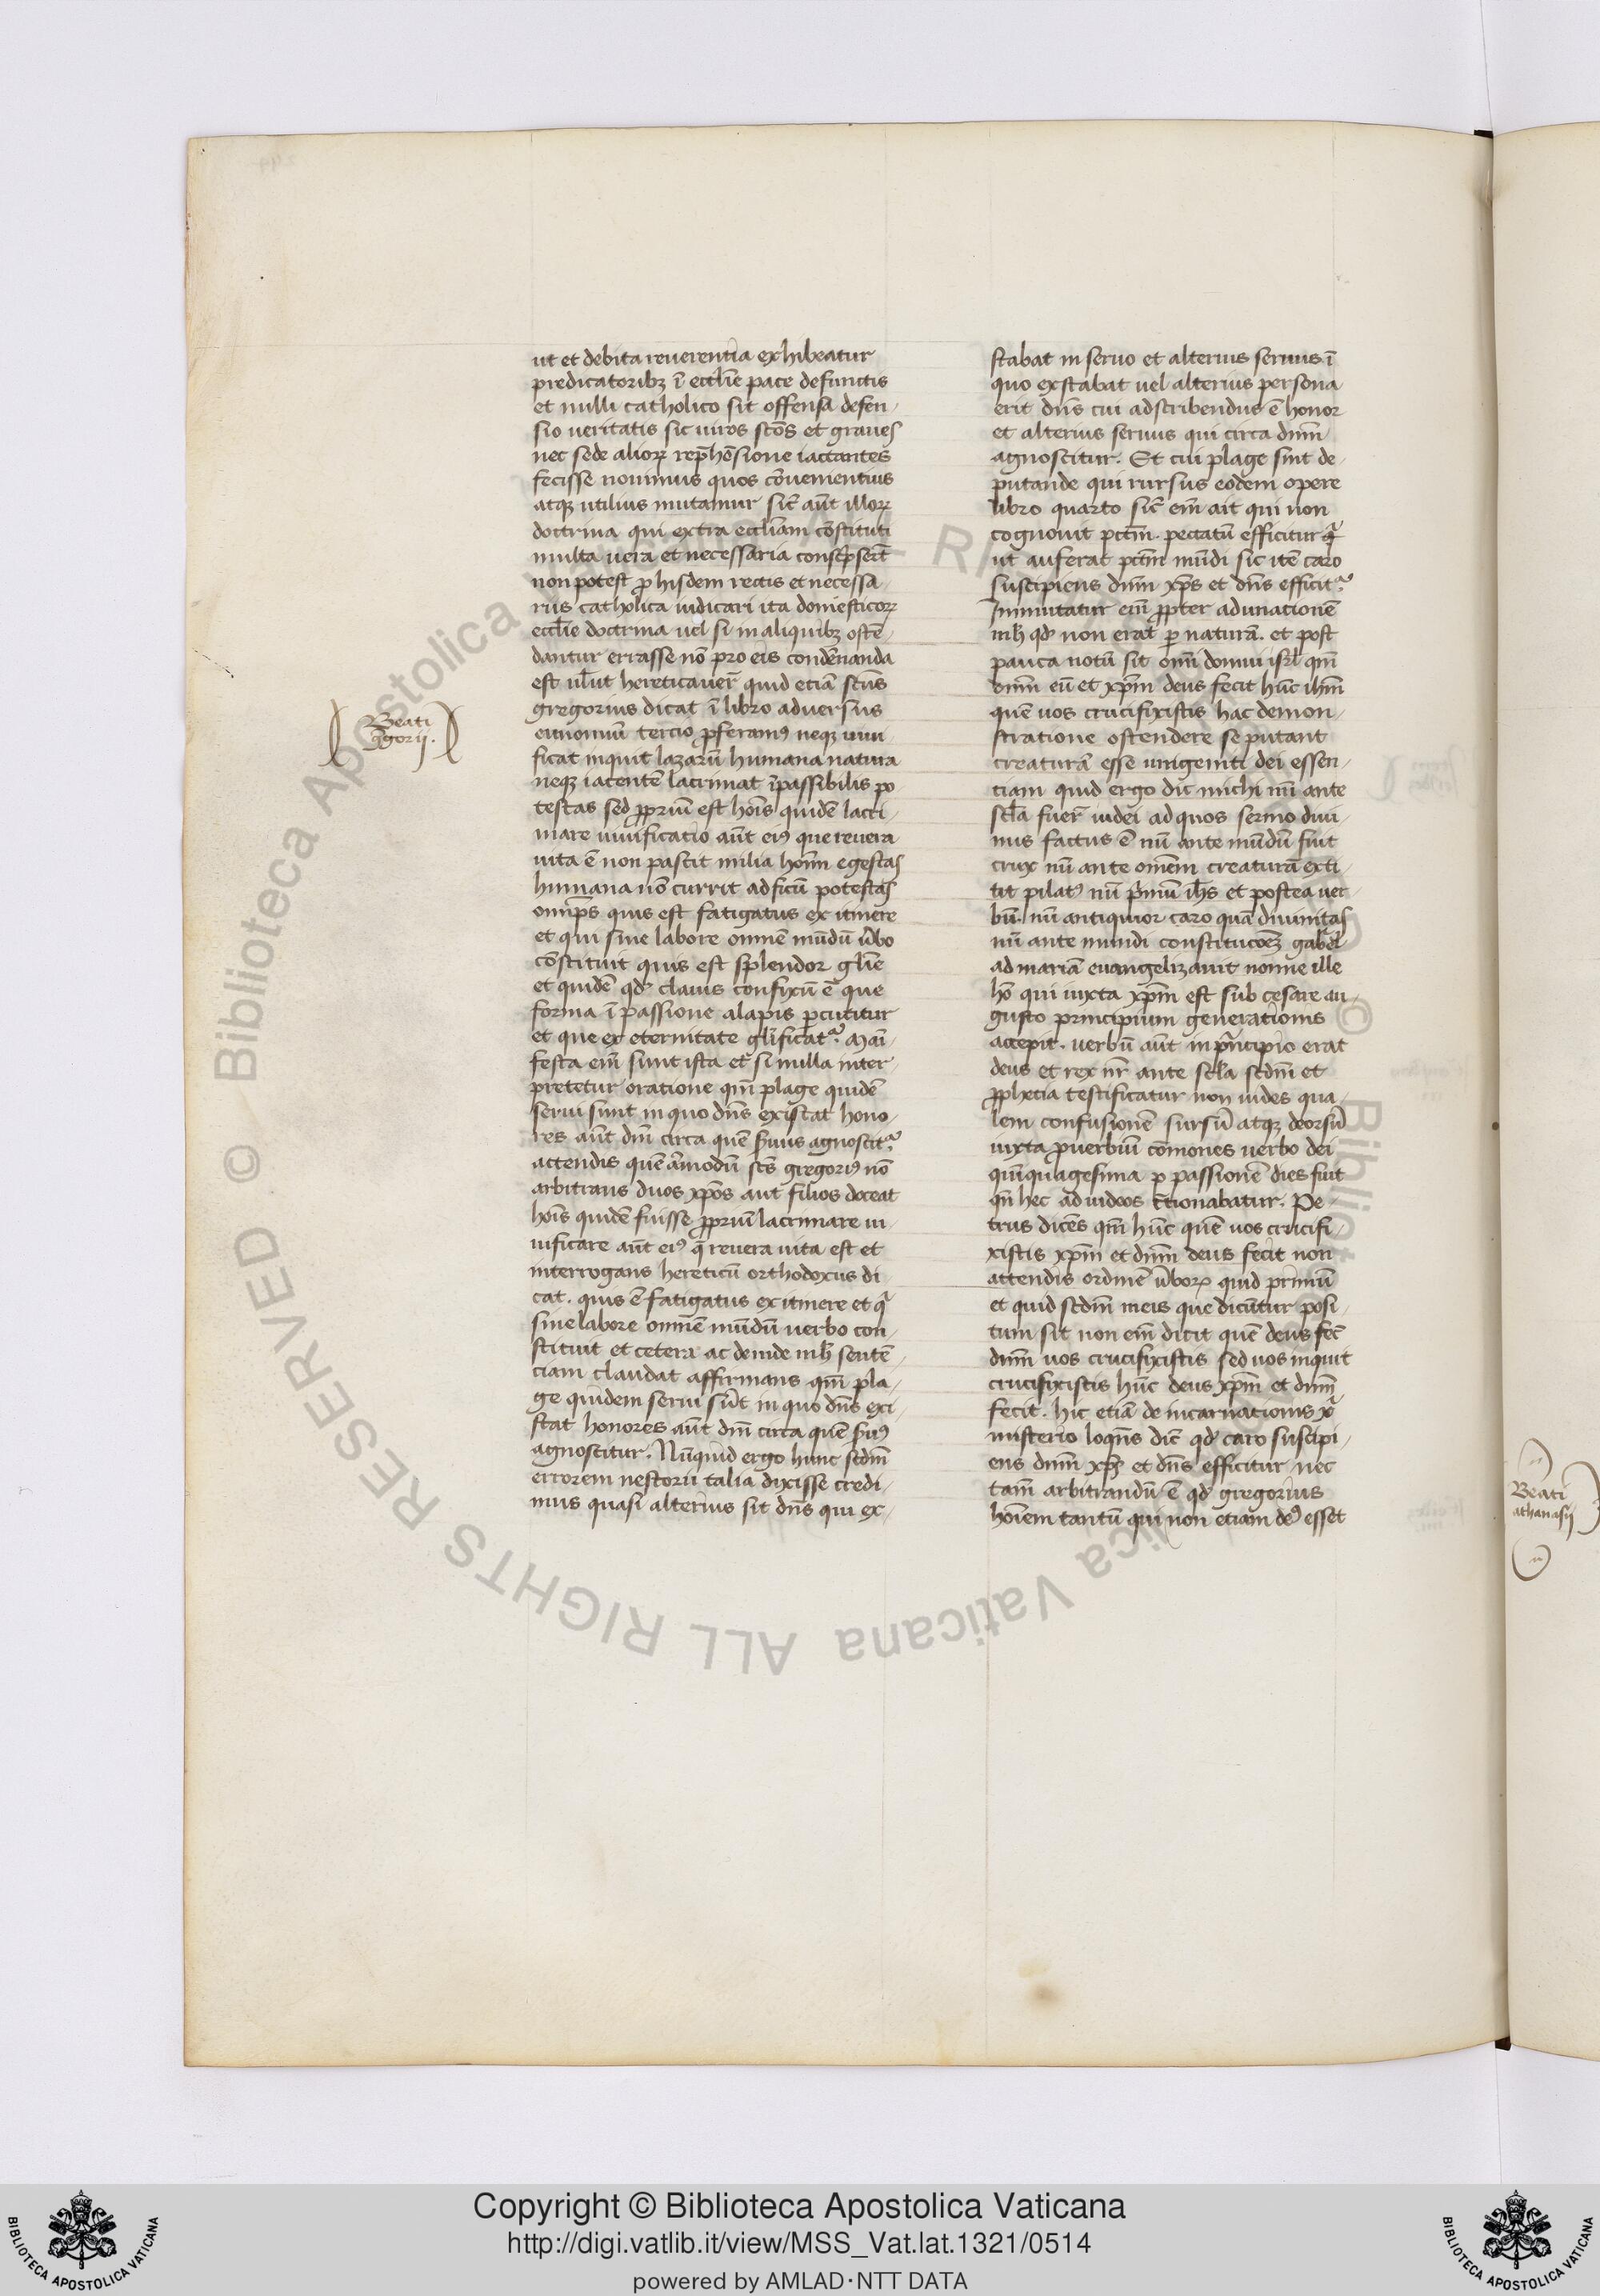 ut et debita reuerentia exhibeatur
predicatoribꝫ ī eccl̄ie pace defunctis
et nulli catholico sit offensa defen-
sio ueritatis sic uiros sc̄os et graues
nec sede alioꝝ rep̄hēsione iactantes
fecisse nouimus quos cōuenientius
atqꝫ utilius mutamur sic̄ aūt illoꝝ
doctrina qui extra eccl̄iam cōstituti
multa uera et necessaria
non potest ꝓ hisdem rectis et necessa-
riis catholica iudicari ita domesticoꝝ
eccl̄ie doctrina uel si in aliquibꝫ ostē-
dantur errasse nō pro eis condēnanda
est ul̄ut quid etiā sc̄us
gregorius dicat ī libro aduersus
eunomiū tercio ꝓferamꝰ neqꝫ uiui
ficat inquit lazarū humana natura
neqꝫ iacentē lacrimat īpassibilis po
testas sed ꝓpriū est hoīs quidē lacri-
mare uiuificatio aūt eiꝰ que reuera
uita ē non pascit milia hoīm egestas
humana nō currit ad ficū potestas
om̄ps quis est fatigatus ex itinere
et qui sine labore omnē mūdū ūbo
cōstituit quis est splendor gl̄ie
et quidē qd̄ clauis confixū ē que
forma ī passione alapis ꝑcutitur
et que ex eternitate gl̄ificatᷣ. Mani-
festa em̄ sunt ista et si nulla inter-
pretetur oratione qm̄ plage quidē
serui sunt in quo dn̄s existat hono-
res aūt dn̄i circa quē seruus agnoscitᷣ.
attendis quēadmodū sc̄s gregoriꝰ nō
arbitrans duos xp̄os aut filios doceat
hoīs quidē fuisse ꝓpriū lacrimare ui-
uificare aūt eiꝰ q̄ reuera uita est et
interrogans hereticū orthodoxus di
cat. quis ē fatigatus ex itinere et qͥ
sine labore omnē mūdū uerbo con-
stituit et cetera ac deinde sentē-
ciam claudat affirmans qm̄ pla-
ge quidem serui sūt in quo dn̄s exi-
stat honores aūt dn̄i circa quē
agnoscitur. Nūquid ergo hunc scd̄m
errorem nestorii talia dixisse credi-
mus quasi alterius sit dn̄s qui ex-
Beati
Ggorij.
stabat in seruo et alterius seruus ī
quo exstabat uel alterius persona
erit dn̄s cui adscribendus ē honor
et alterius seruus qui circa dn̄m
agnoscitur. Et cui plage sint de-
putande qui rursus eodem opere
libro quarto sic̄ em̄ ait qui non
cognouit pctm̄. peccatū efficitur
ut auferat pctm̄ mūdi sic itē caro
suscipiens dn̄m xp̄s et dn̄s efficitᷣ.
Inmutatur em̄ ꝓpter adunationē
qd̄ non erat ꝑ naturā. et post
pauca notū sit om̄i domui isrl̄ qm̄
dn̄m eū et xp̄m deus fecit hūc ihm̄
quē uos crucifixistis hac demon-
stratione ostendere se putant
creaturā esse unigeniti dei essen-
ciam quid ergo dic michi nū ante
scl̄a fuer̄ iudei ad quos sermo diui-
nus factus ē nū ante mūdū fuit
crux nū ante omēm creaturā exti-
tit pilatꝰ nū p̄mū ih̄s et postea uer-
bū. nū antiquior caro quā diuinitas
nū ante mundi constitucōeꝫ gabel̄
ad mariā euangelizauit nonne ille
hō qui iuxta xp̄m est sub cesare au-
gusto principium generationis
accepit. uerbū aūt in principio erat
deus et rex nr̄ ante scl̄a scd̄m et
ꝓphetia testificatur non uides qua-
lem confusionē sursū atqꝫ deorsū
iuxta ꝓuerbiū cōmoues uerbo dei
qm̄quagesima ꝑ passionē dies fuit
qn̄ hec ad iudeos c̄tionabatur. Pe-
trus dicēs qm̄ hūc quē uos crucifi-
xistis xp̄m et dn̄m deus fecit non
attendis ordinē ūboꝝ quid primū
et quid scd̄m in eis que dicūtur posi-
tum sit non em̄ dicit quē deus fec̄
dn̄m uos crucifixistis sed uos inquit
crucifixistis hūc deus xp̄m et dn̄m
fecit. hic etiā de incarnationis xͥ
misterio loqn̄s dic̄ qd̄ caro suscipi-
ens dn̄m xp̄s et dn̄s efficitur nec
tam̄ arbitrandū ē qd̄ gregorius
hoīem tantū qui non etiam deꝰ esset
Beati
athanasij
Copyright © Biblioteca Apostolica Vaticana
http://digi.vatlib.it/view/MSS_Vat.lat.1321/0514
powered by AMLAD·NTT DATA
BIBLIOTECA APOSTOLICA VATICANA
BIBLIOTECA APOSTOLICA VATICANA
© Biblioteca Apostolica Vaticana ALL RIGHTS RESERVED